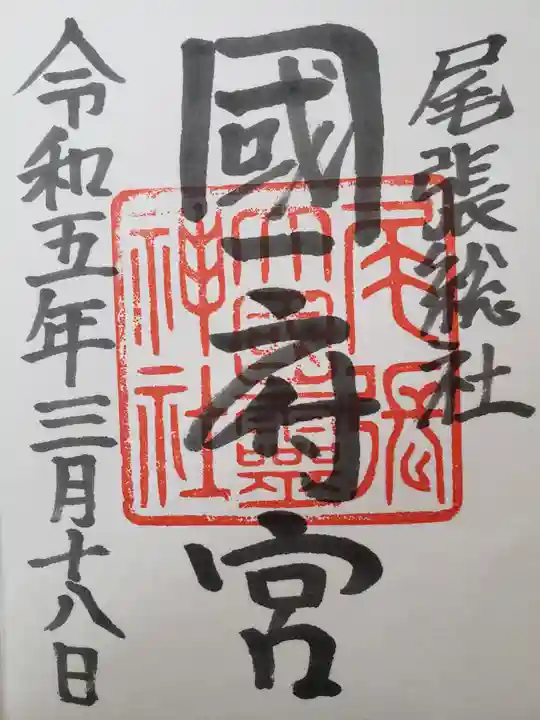 尾張総社
國府宮
令和五年三月十八日
尾張
大國霊
神社